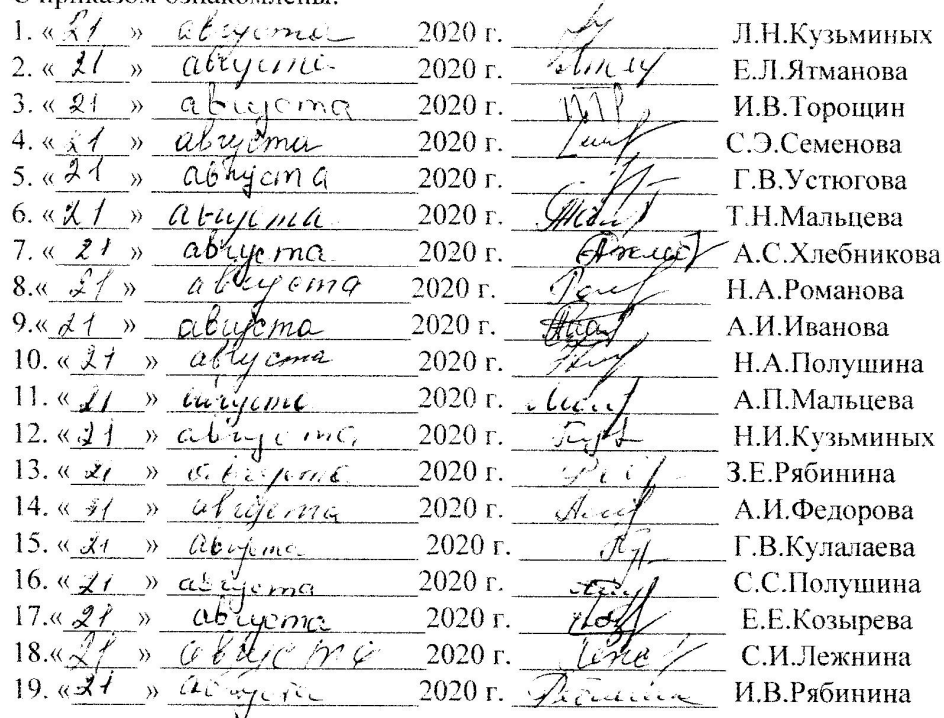 С приказом ознакомлены:
1. «21» августа 2020 г. Л.Н.Кузьминых
2. «21» августа 2020 г. Е.Л.Ятманова
3. «21» августа 2020 г. И.В.Торощин
4. «21» августа 2020 г. С.Э.Семенова
5. «21» августа 2020 г. Г.В.Устюгова
6. «21» августа 2020 г. Т.Н.Мальцева
7. «21» августа 2020 г. А.С.Хлебникова
8.«21» августа 2020 г. Н.А.Романова
9.«21» августа 2020 г. А.И.Иванова
10. «21» августа 2020 г. Н.А.Полушина
11. «21» августа 2020 г. А.П.Мальцева
12. «21» августа 2020 г. Н.И.Кузьминых
13. «21» августа 2020 г. З.Е.Рябинина
14. «21» августа 2020 г. А.И.Федорова
15. «21» августа 2020 г. Г.В.Кулалаева
16. «21» августа 2020 г. С.С.Полушина
17.«21» августа 2020 г. Е.Е.Козырева
18.«21» августа 2020 г. С.И.Лежнина
19. «21» августа 2020 г. И.В.Рябинина